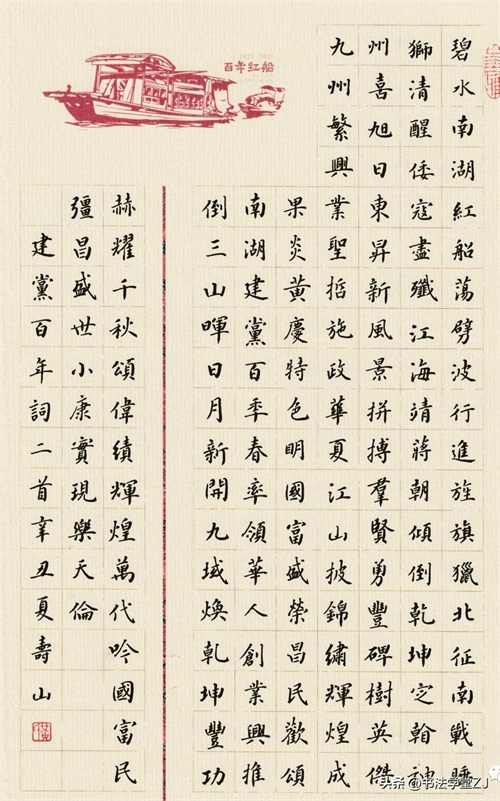 百年红船
碧水南湖紅船蕩劈波行進旌旗獵北征南戰睡
獅清醒倭寇盡殲江海靖蔣朝傾倒乾坤定翰神
州喜旭日東昇新風景拼搏羣賢勇豐碑樹英傑
九州繁興業聖哲施政華夏江山披錦繡輝煌成
果炎黃慶特色明國富盛榮昌民歡頌
南湖建黨百秊春率領華人創業興推
倒三山暉日月新開九域煥乾坤豐功
赫耀千秋頌偉績輝煌萬代吟國富民
彊昌盛世小康實現樂天倫
建黨百年詞二首辛丑夏壽山
头条 @书法学童ZJ